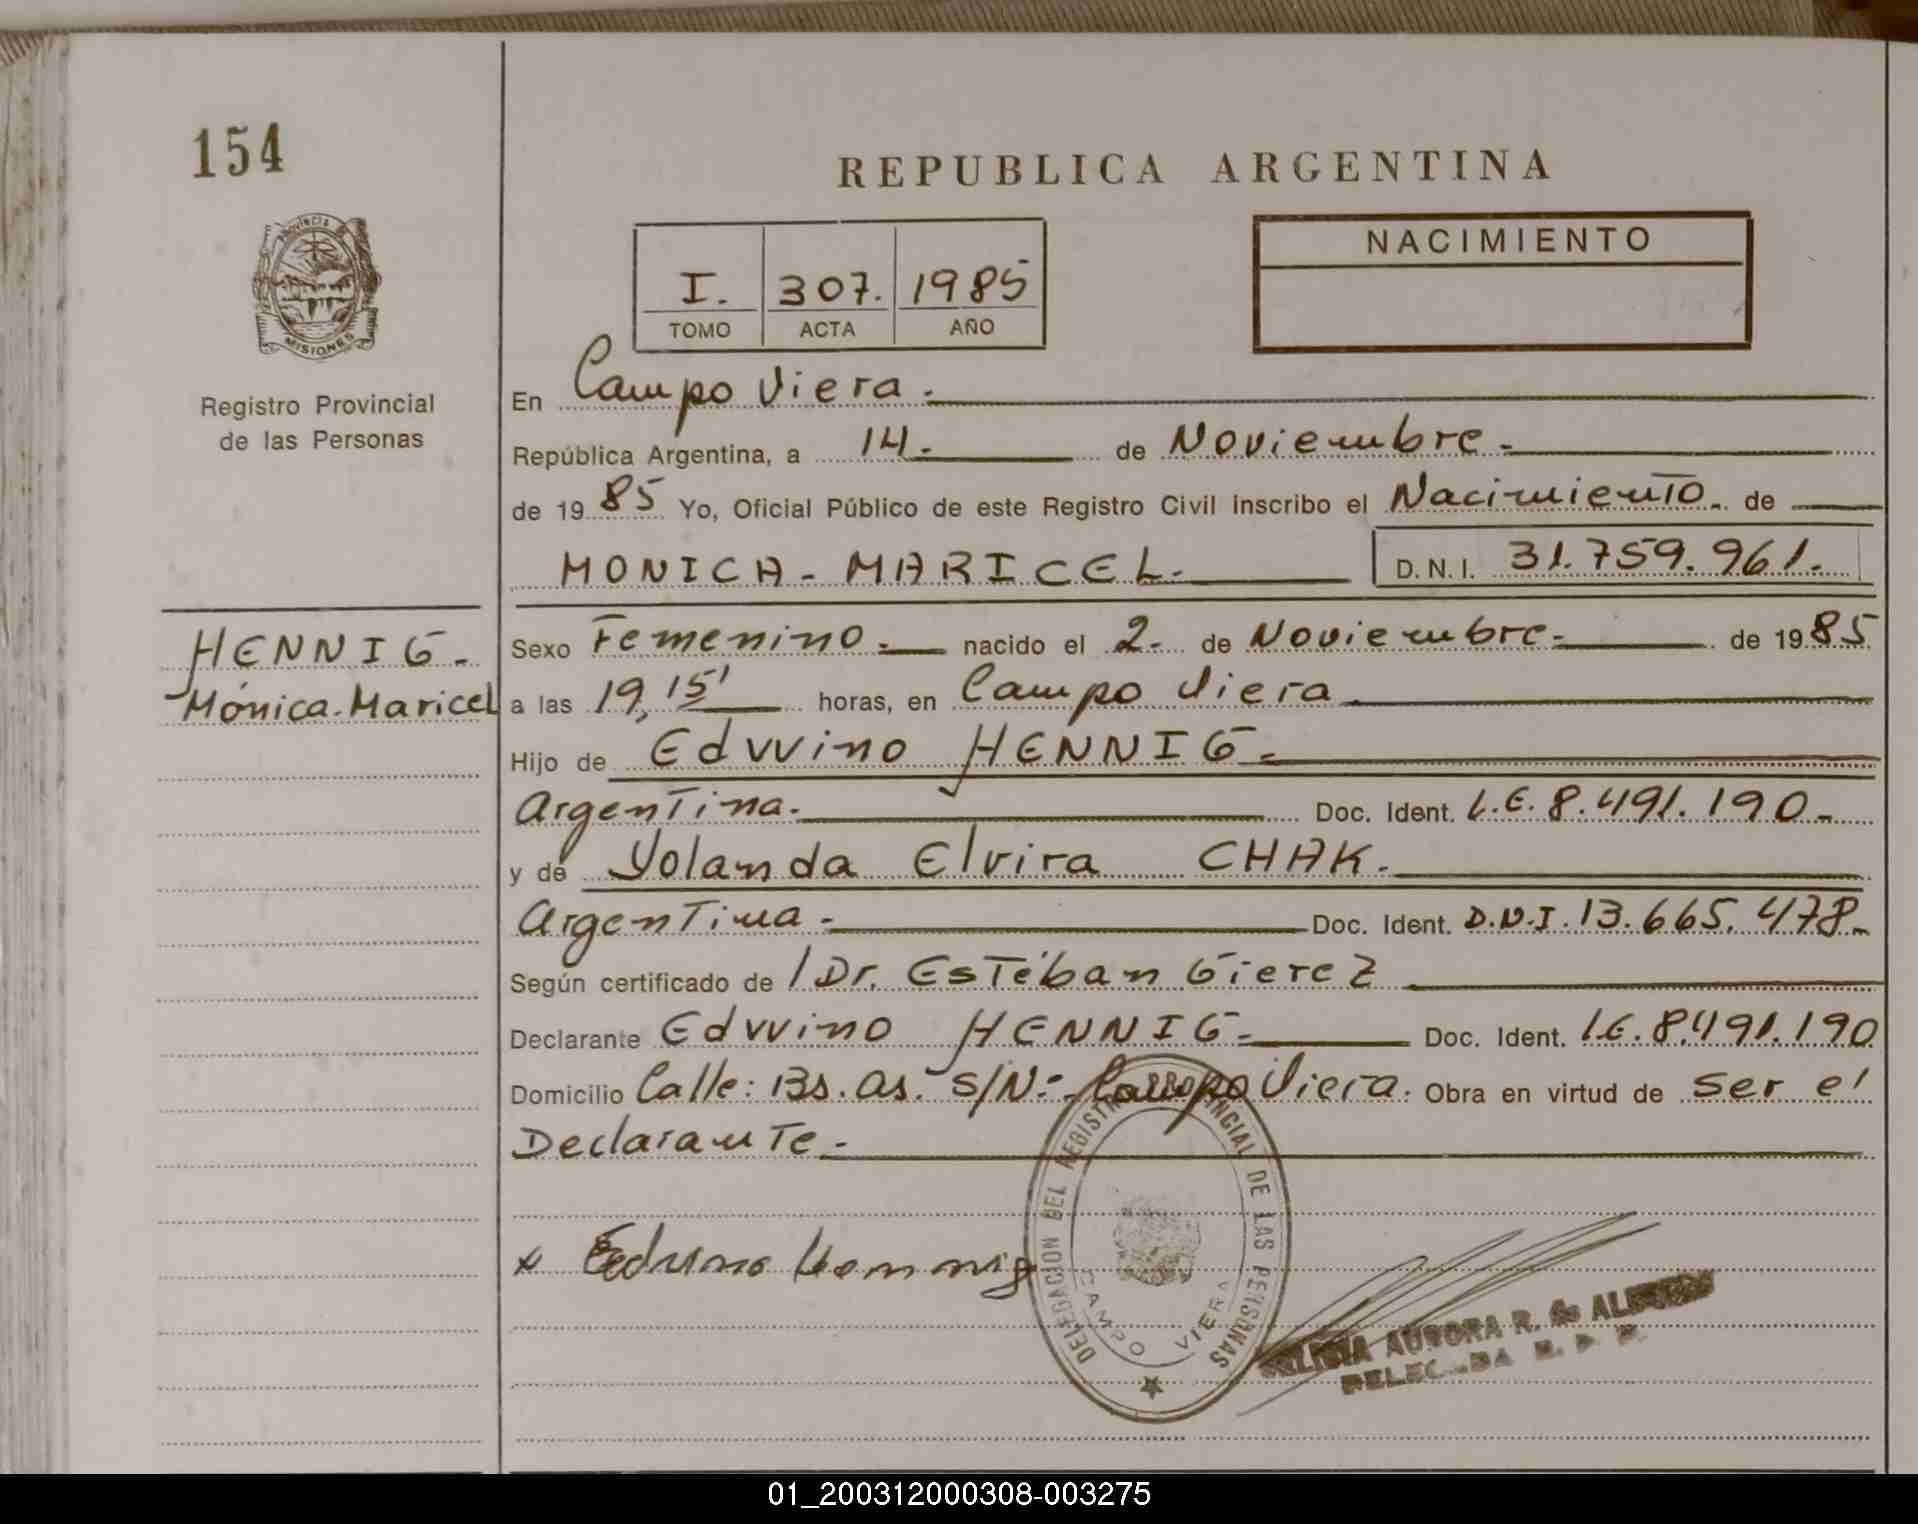 154
REPUBLICA ARGENTINA
PROVINCIA DE
MISIONES
Registro Provincial
de las Personas
I. 307. 1985
TOMO ACTA AÑO
NACIMIENTO
En Campo Viera.
República Argentina, a 14. de Noviembre.
de 1985 Yo, Oficial Público de este Registro Civil inscribo el Nacimiento. de
MONICA - MARICEL. D.N.I. 31.759.961.
HENNIG.
Mónica. Maricel
Sexo Femenino. nacido el 2. de Noviembre. de 1985
a las 19,15' horas, en Campo Viera
Hijo de Edwino HENNIG.
Argentina. Doc. Ident. L.E. 8.491.190.
y de Yolanda Elvira CHAK.
Argentina. Doc. Ident. D.N.I. 13.665.478.
Según certificado de / Dr. Estéban Gierez
Declarante Edwino HENNIG. Doc. Ident. L.E. 8.491.190
Domicilio Calle: Bs. As. S/N: Campo Viera. Obra en virtud de ser el
Declarante.
x Edwino Hennig
DELEGACION DEL REGISTRO PROVINCIAL DE LAS PERSONAS
CAMPO VIERA
AURORA R. de
DELEGADA R. P. P.
01_200312000308-003275